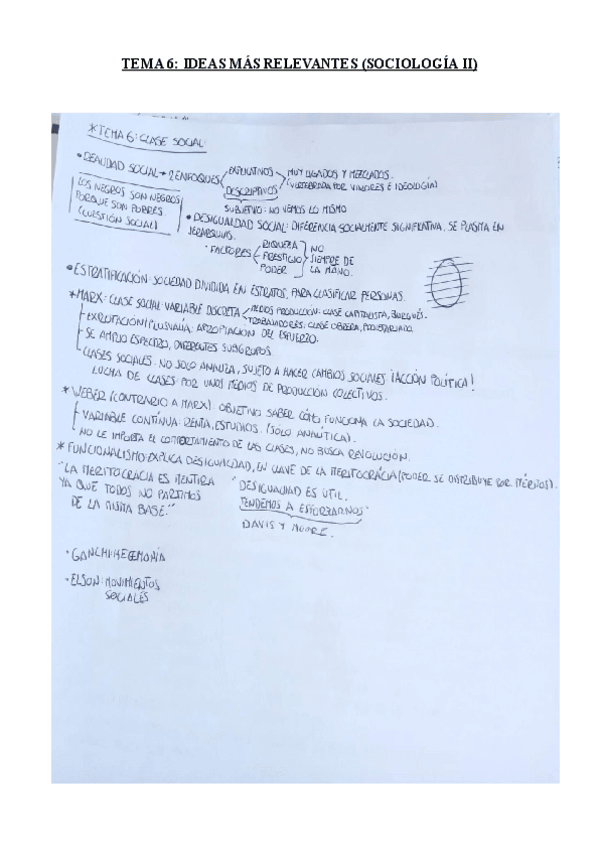 TEMA 6: IDEAS MÁS RELEVANTES (SOCIOLOGÍA II)
* TEMA 6: CLASE SOCIAL
• REALIDAD SOCIAL → 2 ENFOQUES
EXPLICATIVOS
DESCRIPTIVOS
MUY LIGADOS Y MEZCLADOS.
(VERTEBRADA POR VALORES E IDEOLOGÍA)
SUBJETIVO: NO VEMOS LO MISMO
LOS NEGROS SON NEGROS
PORQUE SON POBRES
(CUESTIÓN SOCIAL)
• DESIGUALDAD SOCIAL: DIFERENCIA SOCIALMENTE SIGNIFICATIVA, SE PLASMA EN
JERARQUÍAS.
• FACTORES
RIQUEZA
PRESTIGIO
PODER
NO
SIEMPRE DE
LA MANO.
• ESTRATIFICACIÓN: SOCIEDAD DIVIDIDA EN ESTRATOS, PARA CLASIFICAR PERSONAS.
* MARX: CLASE SOCIAL: VARIABLE DISCRETA
MEDIOS PRODUCCIÓN: CLASE CAPITALISTA, BURGUÉS.
TRABAJADORES: CLASE OBRERA, PROLETARIADO
- EXPLOTACIÓN/PLUSVALÍA: APROPIACIÓN DEL ESFUERZO.
- SE AMPLIO ESPECTRO, DIFERENTES SUBGRUPOS.
- CLASES SOCIALES: NO SOLO ANALIZA, SUJETO A HACER CAMBIOS SOCIALES ¡ACCIÓN POLÍTICA!
LUCHA DE CLASES: POR UNOS MEDIOS DE PRODUCCIÓN COLECTIVOS.
* WEBER (CONTRARIO A MARX): OBJETIVO SABER CÓMO FUNCIONA LA SOCIEDAD.
- VARIABLE CONTÍNUA: RENTA, ESTUDIOS. (SOLO ANALÍTICA).
- NO LE IMPORTA EL COMPORTAMIENTO DE LAS CLASES, NO BUSCA REVOLUCIÓN.
* FUNCIONALISMO: EXPLICA DESIGUALDAD, EN CLAVE DE LA MERITOCRÁCIA (PODER SE DISTRIBUYE POR MÉRITOS).
"LA MERITOCRACIA ES MENTIRA
YA QUE TODOS NO PARTIMOS
DE LA MISMA BASE."
"DESIGUALDAD ES UTIL.
TENDEMOS A ESFORZARNOS"
DAVIS Y MOORE.
HEGEMONÍA
MOVIMIENTOS
SOCIALES